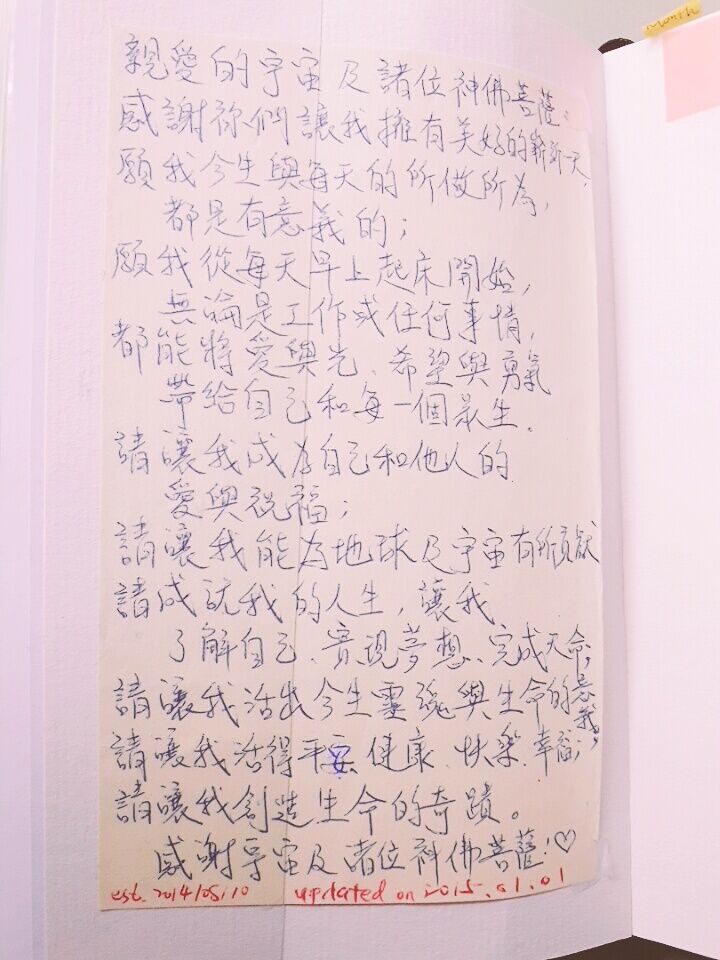 month
親愛的宇宙及諸位神佛菩薩：
感謝祢們讓我擁有美好的嶄新一天，
願我今生與每天的所做所為，
都是有意義的；
願我從每天早上起床開始，
無論是工作或任何事情，
都能將愛與光、希望與勇氣
帶給自己和每一個眾生。
請讓我成為自己和他人的
愛與祝福；
請讓我能為地球及宇宙有所貢獻
請成就我的人生，讓我
了解自己、實現夢想、完成天命；
請讓我活出今生靈魂與生命的意義；
請讓我活得平安、健康、快樂、幸福；
請讓我創造生命的奇蹟。
感謝宇宙及諸位神佛菩薩！♡
est. 2014/05/10 updated on 2015.01.01